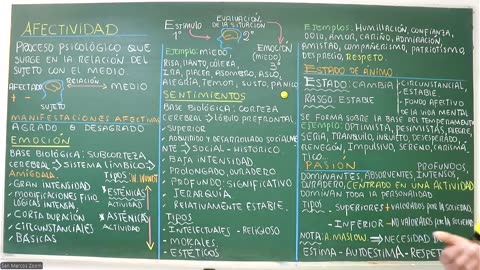 AFECTIVIDAD
PROCESO PSICOLÓGICO QUE
SURGE EN LA RELACIÓN DEL
SUJETO CON EL MEDIO.
AFECTADO RELACIÓN MEDIO
+ -
SUJETO
MANIFESTACIONES AFECTIVAS
AGRADO & DESAGRADO
EMOCIÓN
BASE BIOLÓGICA: SUBCORTEZA
CEREBRAL → SISTEMA LÍMBICO
AMÍGDALA TIPOS W. WUNDT
GRAN INTENSIDAD
MODIFICACIONES FISIO
LÓGICAS INTERNAS
CORTA DURACIÓN
CIRCUNSTANCIALES
BÁSICAS
ESTÉNICAS
ACTIVIDAD
ASTÉNICAS
ACTIVIDAD
ESTÍMULO
1°
EVALUACIÓN
DE LA SITUACIÓN
2°
EMOCIÓN
(MIEDO)
3°
Ejemplo: MIEDO,
RISA, LLANTO, CÓLERA,
IRA, PLACER, ASOMBRO, ASCO,
ALEGRÍA, TEMOR, SUSTO, PÁNICO
SENTIMIENTOS
BASE BIOLÓGICA: CORTEZA
CEREBRAL → LÓBULO PREFRONTAL
SUPERIOR
ADQUIRIDO Y DESARROLLADO SOCIALME
NTE → SOCIAL - HISTÓRICO
BAJA INTENSIDAD
PROLONGADO, DURADERO
PROFUNDO: SIGNIFICATIVO
JERARQUÍA
RELATIVAMENTE ESTABLE.
TIPOS
INTELECTUALES - RELIGIOSO
MORALES
ESTÉTICOS
Ejemplos: HUMILLACIÓN, CONFIANZA,
ODIO, AMOR, CARIÑO, ADMIRACIÓN,
AMISTAD, COMPAÑERISMO, PATRIOTISMO
DESPRECIO, RESPETO.
ESTADO DE ÁNIMO
ESTADO: CAMBIA
RASGO: ESTABLE
CIRCUNSTANCIAL,
ESTABLE
FONDO AFECTIVO
DE LA VIDA MENTAL
SE FORMA SOBRE LA BASE DEL TEMPERAMENTO
EJEMPLO: OPTIMISTA, PESIMISTAS, ALEGRE,
SERIA, TRANQUILO, INQUIETO, DESESPERADO,
RENEGÓN, IMPULSIVO, SERENO, CARISMÁ
TICO.
PASIÓN PROFUNDOS
DOMINANTES, ABSORVENTES, INTENSOS,
DURADERO, CENTRADO EN UNA ACTIVIDAD
DOMINAN TODA LA PERSONALIDAD
TIPOS - SUPERIORES + VALORADOS POR LA SOCIEDAD
- INFERIOR - NO VALORADOS POR LA SOCIEDAD
NOTA: A. MASLOW → NECESIDAD
ESTIMA - AUTOESTIMA - RESPETO
San Marcos Zoom